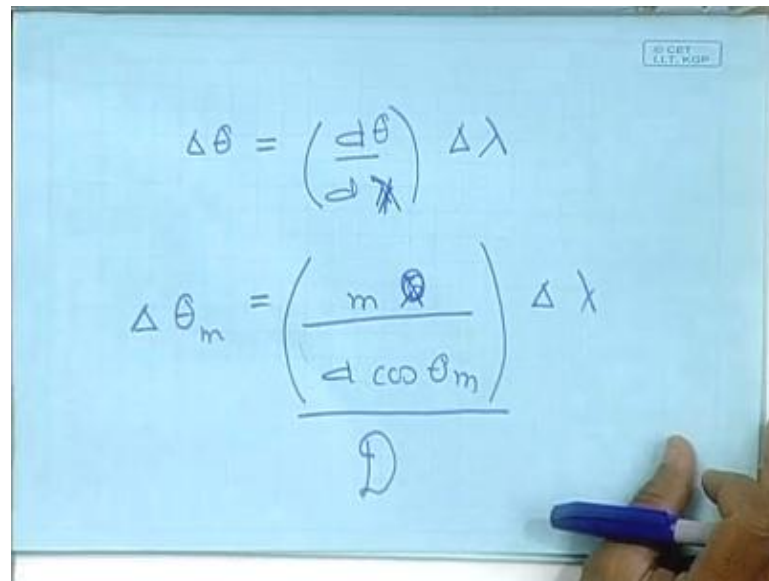 © CET
I.I.T. KGP
Δθ = (dθ/dλ) Δλ
Δθ_m = (m / d cos θ_m) Δλ
D